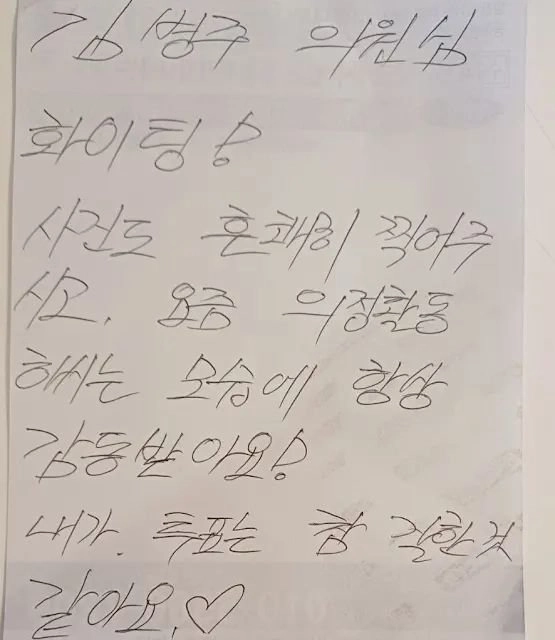 김병주 의원님
화이팅!
사진도 흔쾌히 찍어주
시고, 요즘 의정활동
하시는 모습에 항상
감동받아요!
내가, 투표는 참 잘한 것
같아요.♡